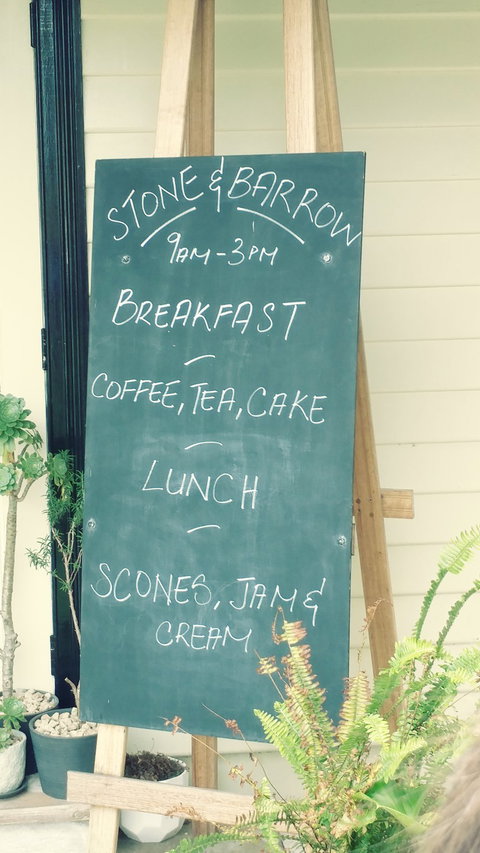 STONE & BARROW
9AM-3PM
BREAKFAST
COFFEE, TEA, CAKE
LUNCH
SCONES, JAM &
CREAM